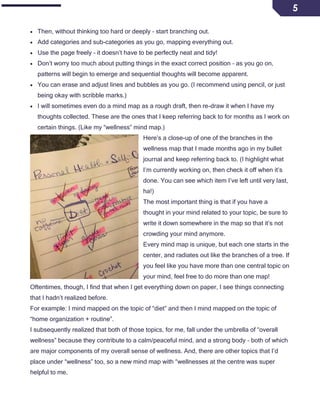 5
• Then, without thinking too hard or deeply - start branching out.
• Add categories and sub-categories as you go, mapping everything out.
• Use the page freely - it doesn't have to be perfectly neat and tidy!
• Don't worry too much about putting things in the exact correct position - as you go on,
patterns will begin to emerge and sequential thoughts will become apparent.
• You can erase and adjust lines and bubbles as you go. (I recommend using pencil, or just
being okay with scribble marks.)
• I will sometimes even do a mind map as a rough draft, then re-draw it when I have my
thoughts collected. These are the ones that I keep referring back to for months as I work on
certain things. (Like my "wellness" mind map.)
Here's a close-up of one of the branches in the
wellness map that I made months ago in my bullet
journal and keep referring back to. (I highlight what
I'm currently working on, then check it off when it's
done. You can see which item I've left until very last,
ha!)
The most important thing is that if you have a
thought in your mind related to your topic, be sure to
write it down somewhere in the map so that it's not
crowding your mind anymore.
Every mind map is unique, but each one starts in the
center, and radiates out like the branches of a tree. If
you feel like you have more than one central topic on
your mind, feel free to do more than one map!
Personal Health + Self-
Diet
no
caffeine
crochet
Oftentimes, though, I find that when I get everything down on paper, I see things connecting
that I hadn't realized before.
For example: I mind mapped on the topic of "diet" and then I mind mapped on the topic of
"home organization + routine".
I subsequently realized that both of those topics, for me, fall under the umbrella of "overall
wellness" because they contribute to a calm/peaceful mind, and a strong body - both of which
are major components of my overall sense of wellness. And, there are other topics that I'd
place under "wellness" too, so a new mind map with "wellnesses at the centre was super
helpful to me.